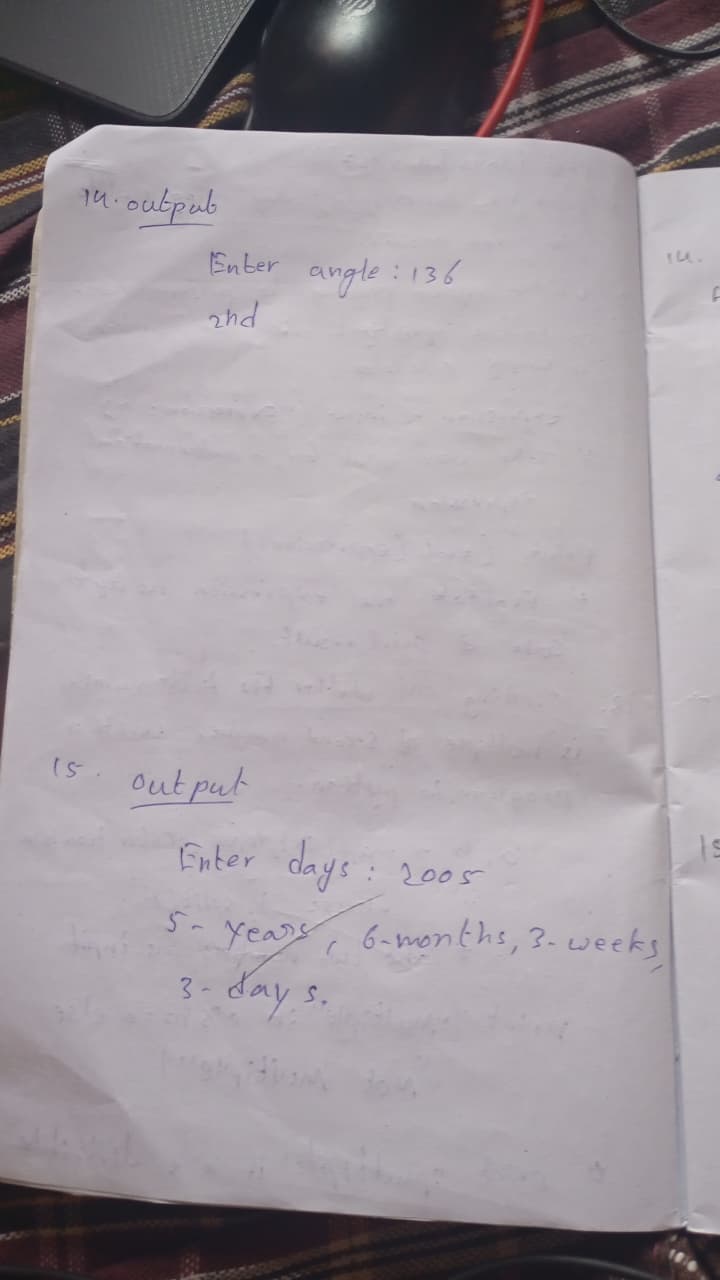 14. output
Enter angle : 136
2nd
15. output
Enter days : 2005
5- years, 6-months, 3-weeks,
3-days.
14.
15